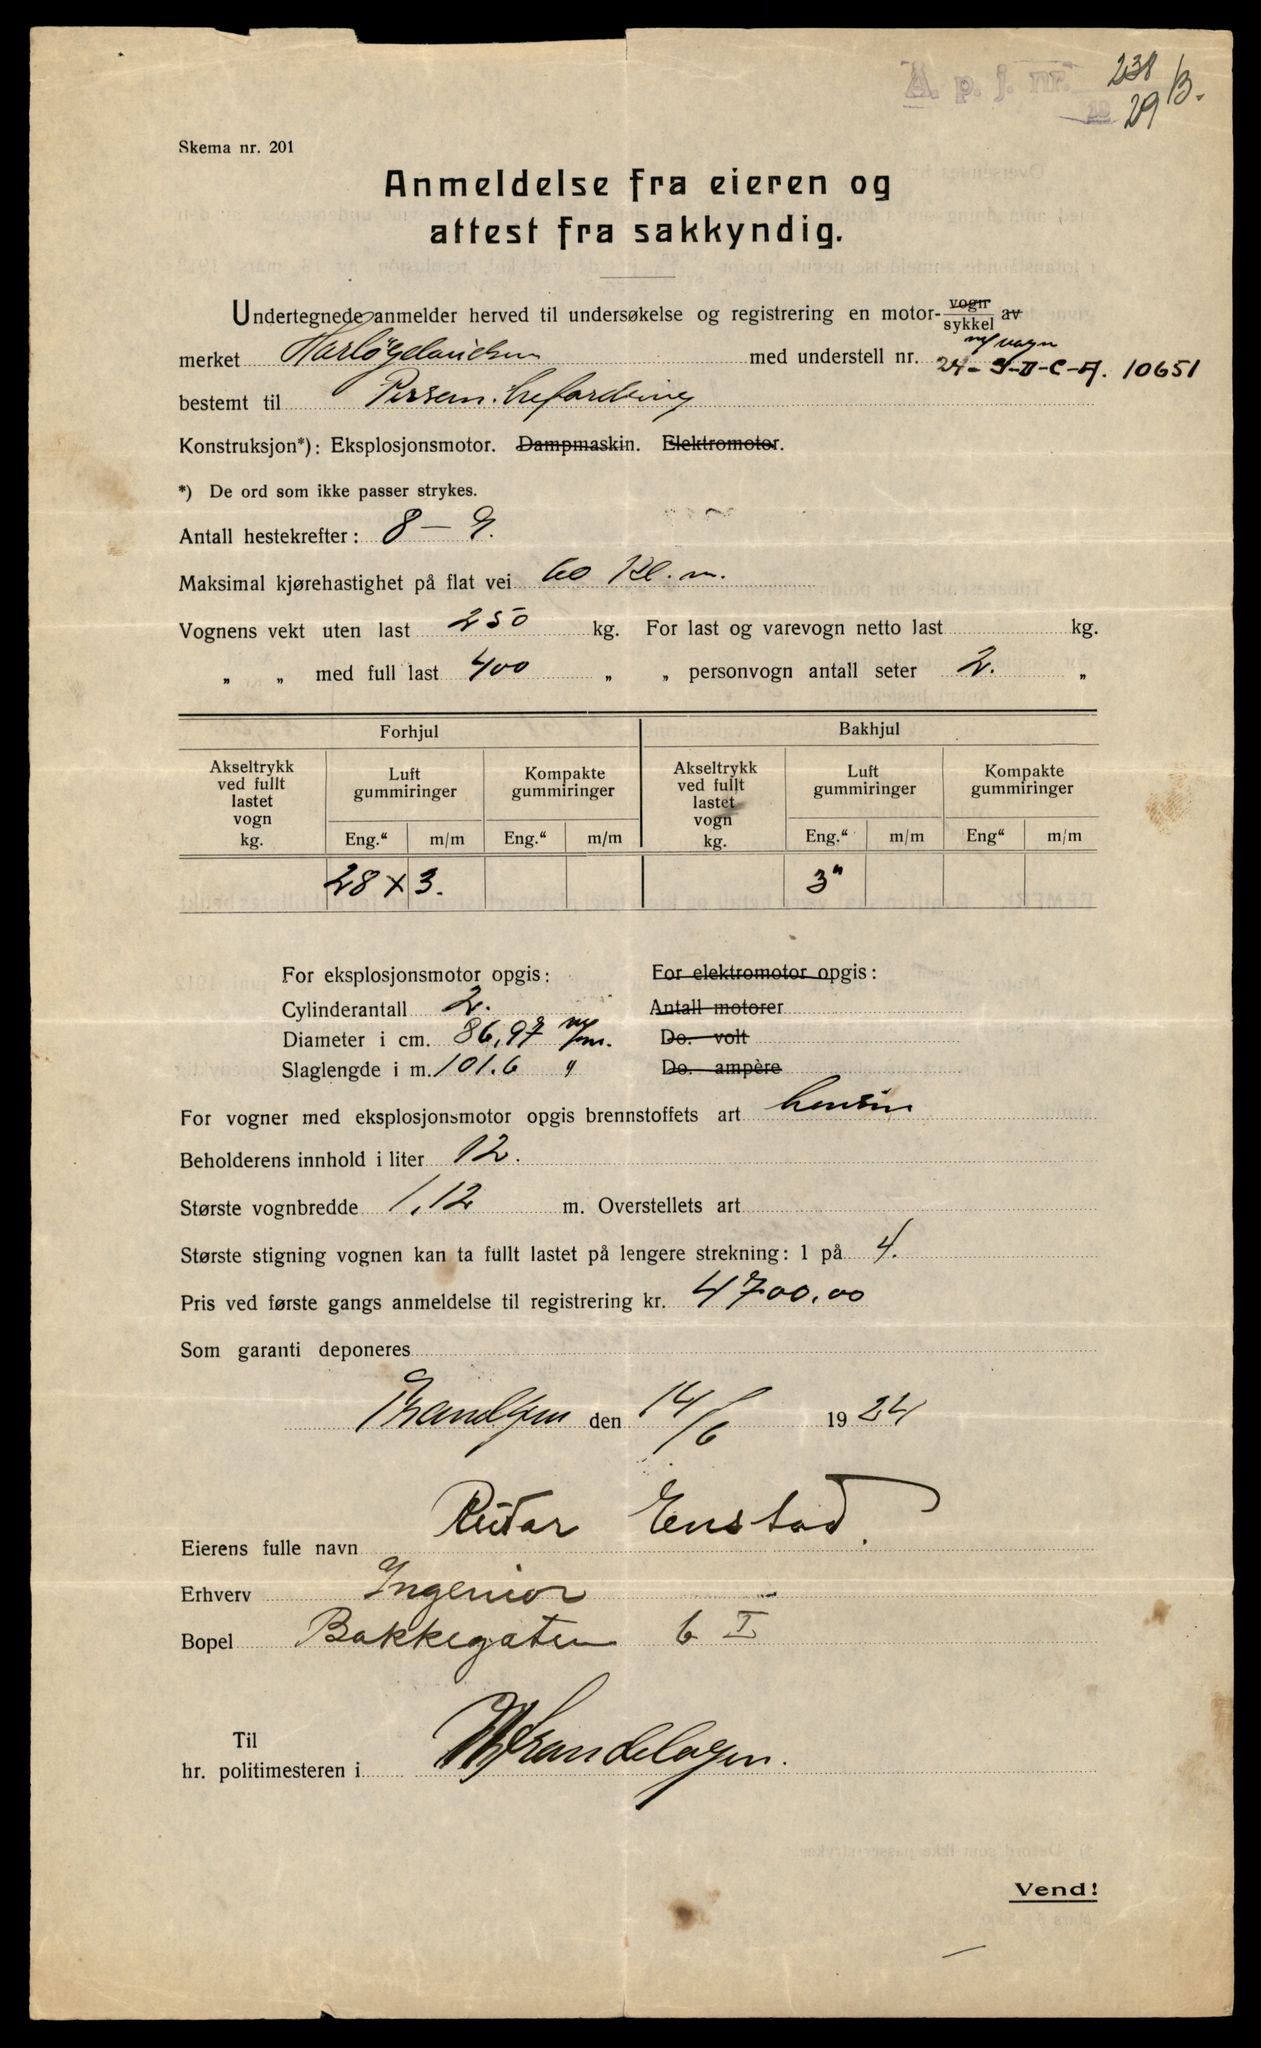 A. p. j. nr. 238
19 29 B.
Skema nr. 201
Anmeldelse fra eieren og
attest fra sakkyndig.
Undertegnede anmelder herved til undersøkelse og registrering en motor-vogn/sykkel av
m/vogn
merket med understell nr. 24-J-II-C-A. 10651
bestemt til Person.befordring
Konstruksjon*): Eksplosjonsmotor. Dampmaskin. Elektromotor.
*) De ord som ikke passer strykes.
Antall hestekrefter: 8 – 9.
Maksimal kjørehastighet på flat vei 60 Kl. m.
Vognens vekt uten last 250 kg. For last og varevogn netto last kg.
„ „ med full last 400 „ „ personvogn antall seter 2. „
Forhjul Bakhjul
Akseltrykk ved fullt lastet vogn kg. Luft gummiringer Kompakte gummiringer Akseltrykk ved fullt lastet vogn kg. Luft gummiringer Kompakte gummiringer
Eng." m/m Eng." m/m Eng." m/m Eng" m/m
28 x 3. 3"
For eksplosjonsmotor opgis: For elektromotor opgis:
Cylinderantall 2. Antall motorer
Diameter i cm. 86,97 m/m. Do. volt
Slaglengde i m. 101.6 " Do. ampère
For vogner med eksplosjonsmotor opgis brennstoffets art bensin
Beholderens innhold i liter 12.
Største vognbredde 1,12 m. Overstellets art
Største stigning vognen kan ta fullt lastet på lengere strekning: 1 på 4.
Pris ved første gangs anmeldelse til registrering kr. 4700.00
Som garanti deponeres
Trondhjem den 14/6 1924
Eierens fulle navn Reidar Enstad.
Erhverv Ingeniør
Bopel Bakkegaten 6 I
Til
hr. politimesteren i
Vend!